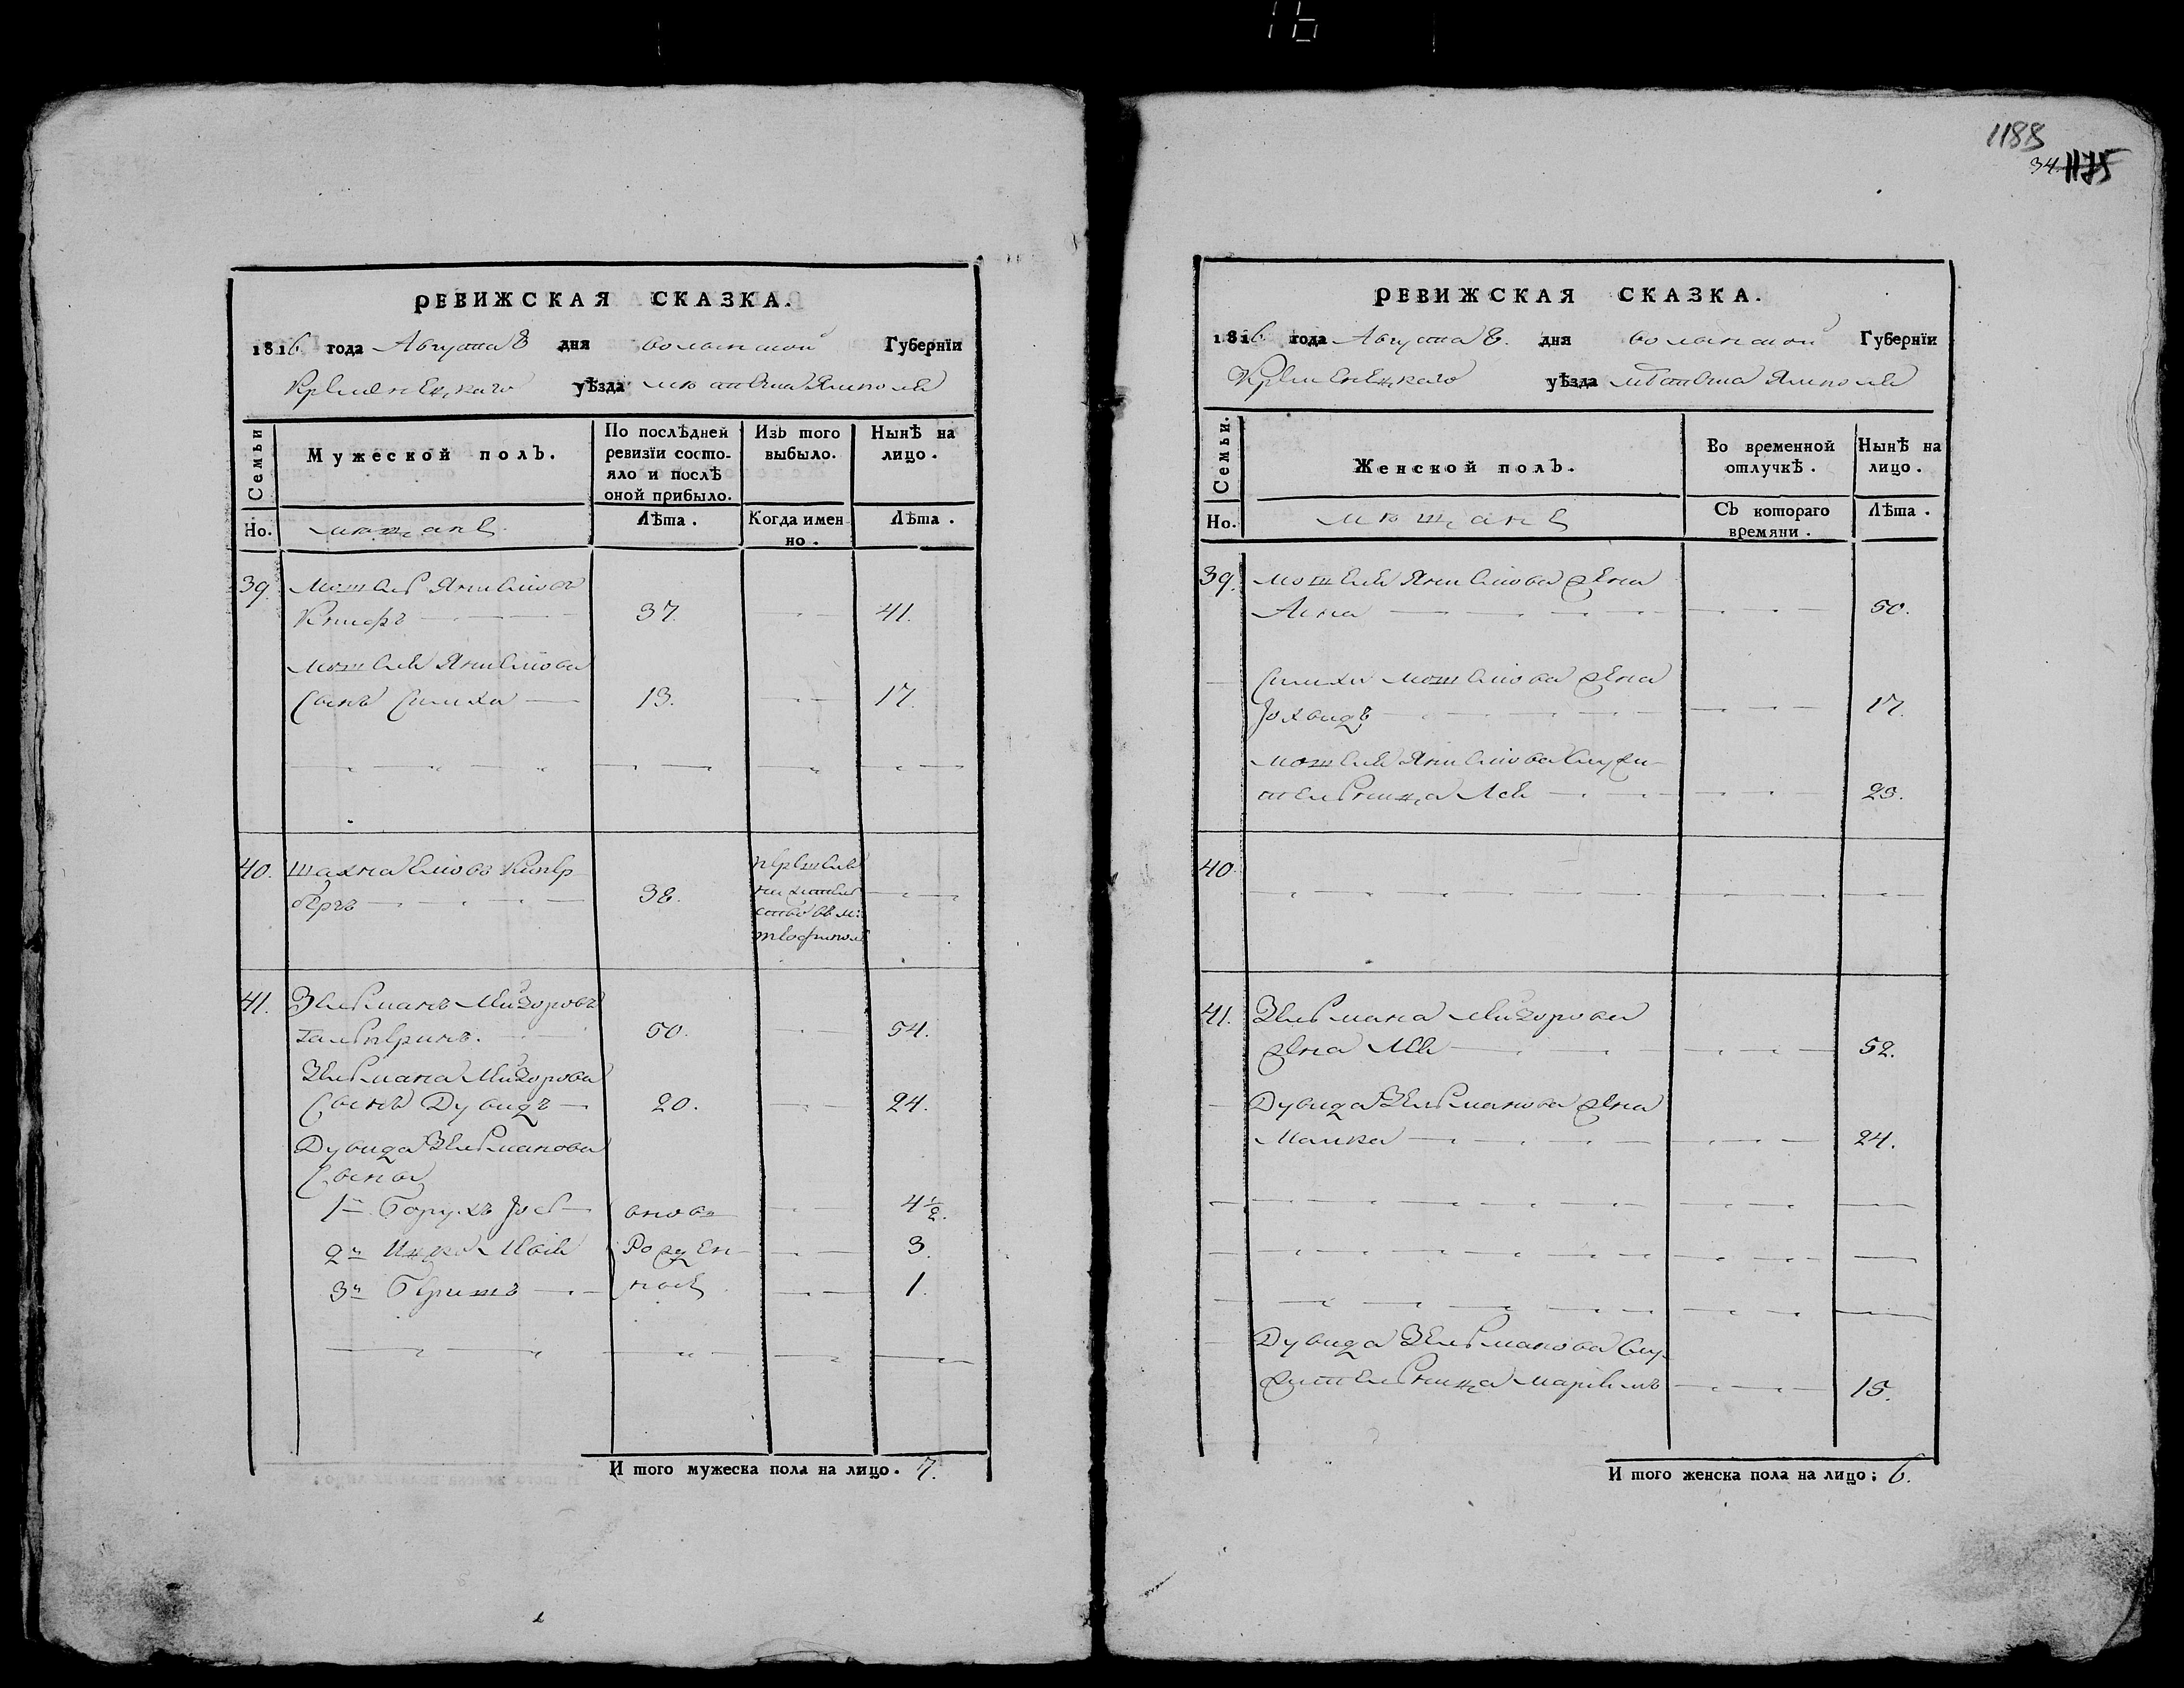 1188
34. 1175
РЕВИЖСКАЯ СКАЗКА.
1816 года Августа 8 дня волынской Губернїи
Кременецкаго уѣзда местечка Ямполя
Семьи
Мужеской полъ.
По послѣдней ревизїи состояло и послѣ оной прибыло.
Изъ того выбыло.
Нынѣ на лицо.
Но.
мещане
Лѣта.
Когда именно.
Лѣта.
39. Мошель Янкелїовъ
37. 41.
Мошеля Янкелїова
Сынъ Симха 13. 17.
40. Шахна
38.
перешелъ
на жител
ство в м:
41. Зельманъ Майоровъ
Гальперинъ. 50. 54.
Зельмана Майорова
Сынъ Дувидъ 20. 24.
Дувида Зельманова
Сыны
1й Борухъ Іось вновь 4 1/2.
2й Ицко Рожден 3.
3й Беришъ ные 1.
И того мужеска пола на лицо. 7.
РЕВИЖСКАЯ СКАЗКА.
1816 года Августа 8. дня волынской Губернїи
Кременецкаго уѣзда местечка Ямполя
Семьи.
Женской полъ.
Во временной отлучкѣ.
Нынѣ на лицо.
Но.
мещане
Съ котораго времяни.
Лѣта.
39. Мошеля Янкелїова жена
50.
Симхи Мошелїова жена
Іохвидъ 17.
Мошеля Янкелїова служи
тельница Лея 23.
40.
41. Зельмана Майорова
жена Лея 52.
Дувида Зельманова жена
Малка 24.
Дувида Зельманова слу
жительница Марїемъ 15.
И того женска пола на лицо; 6.